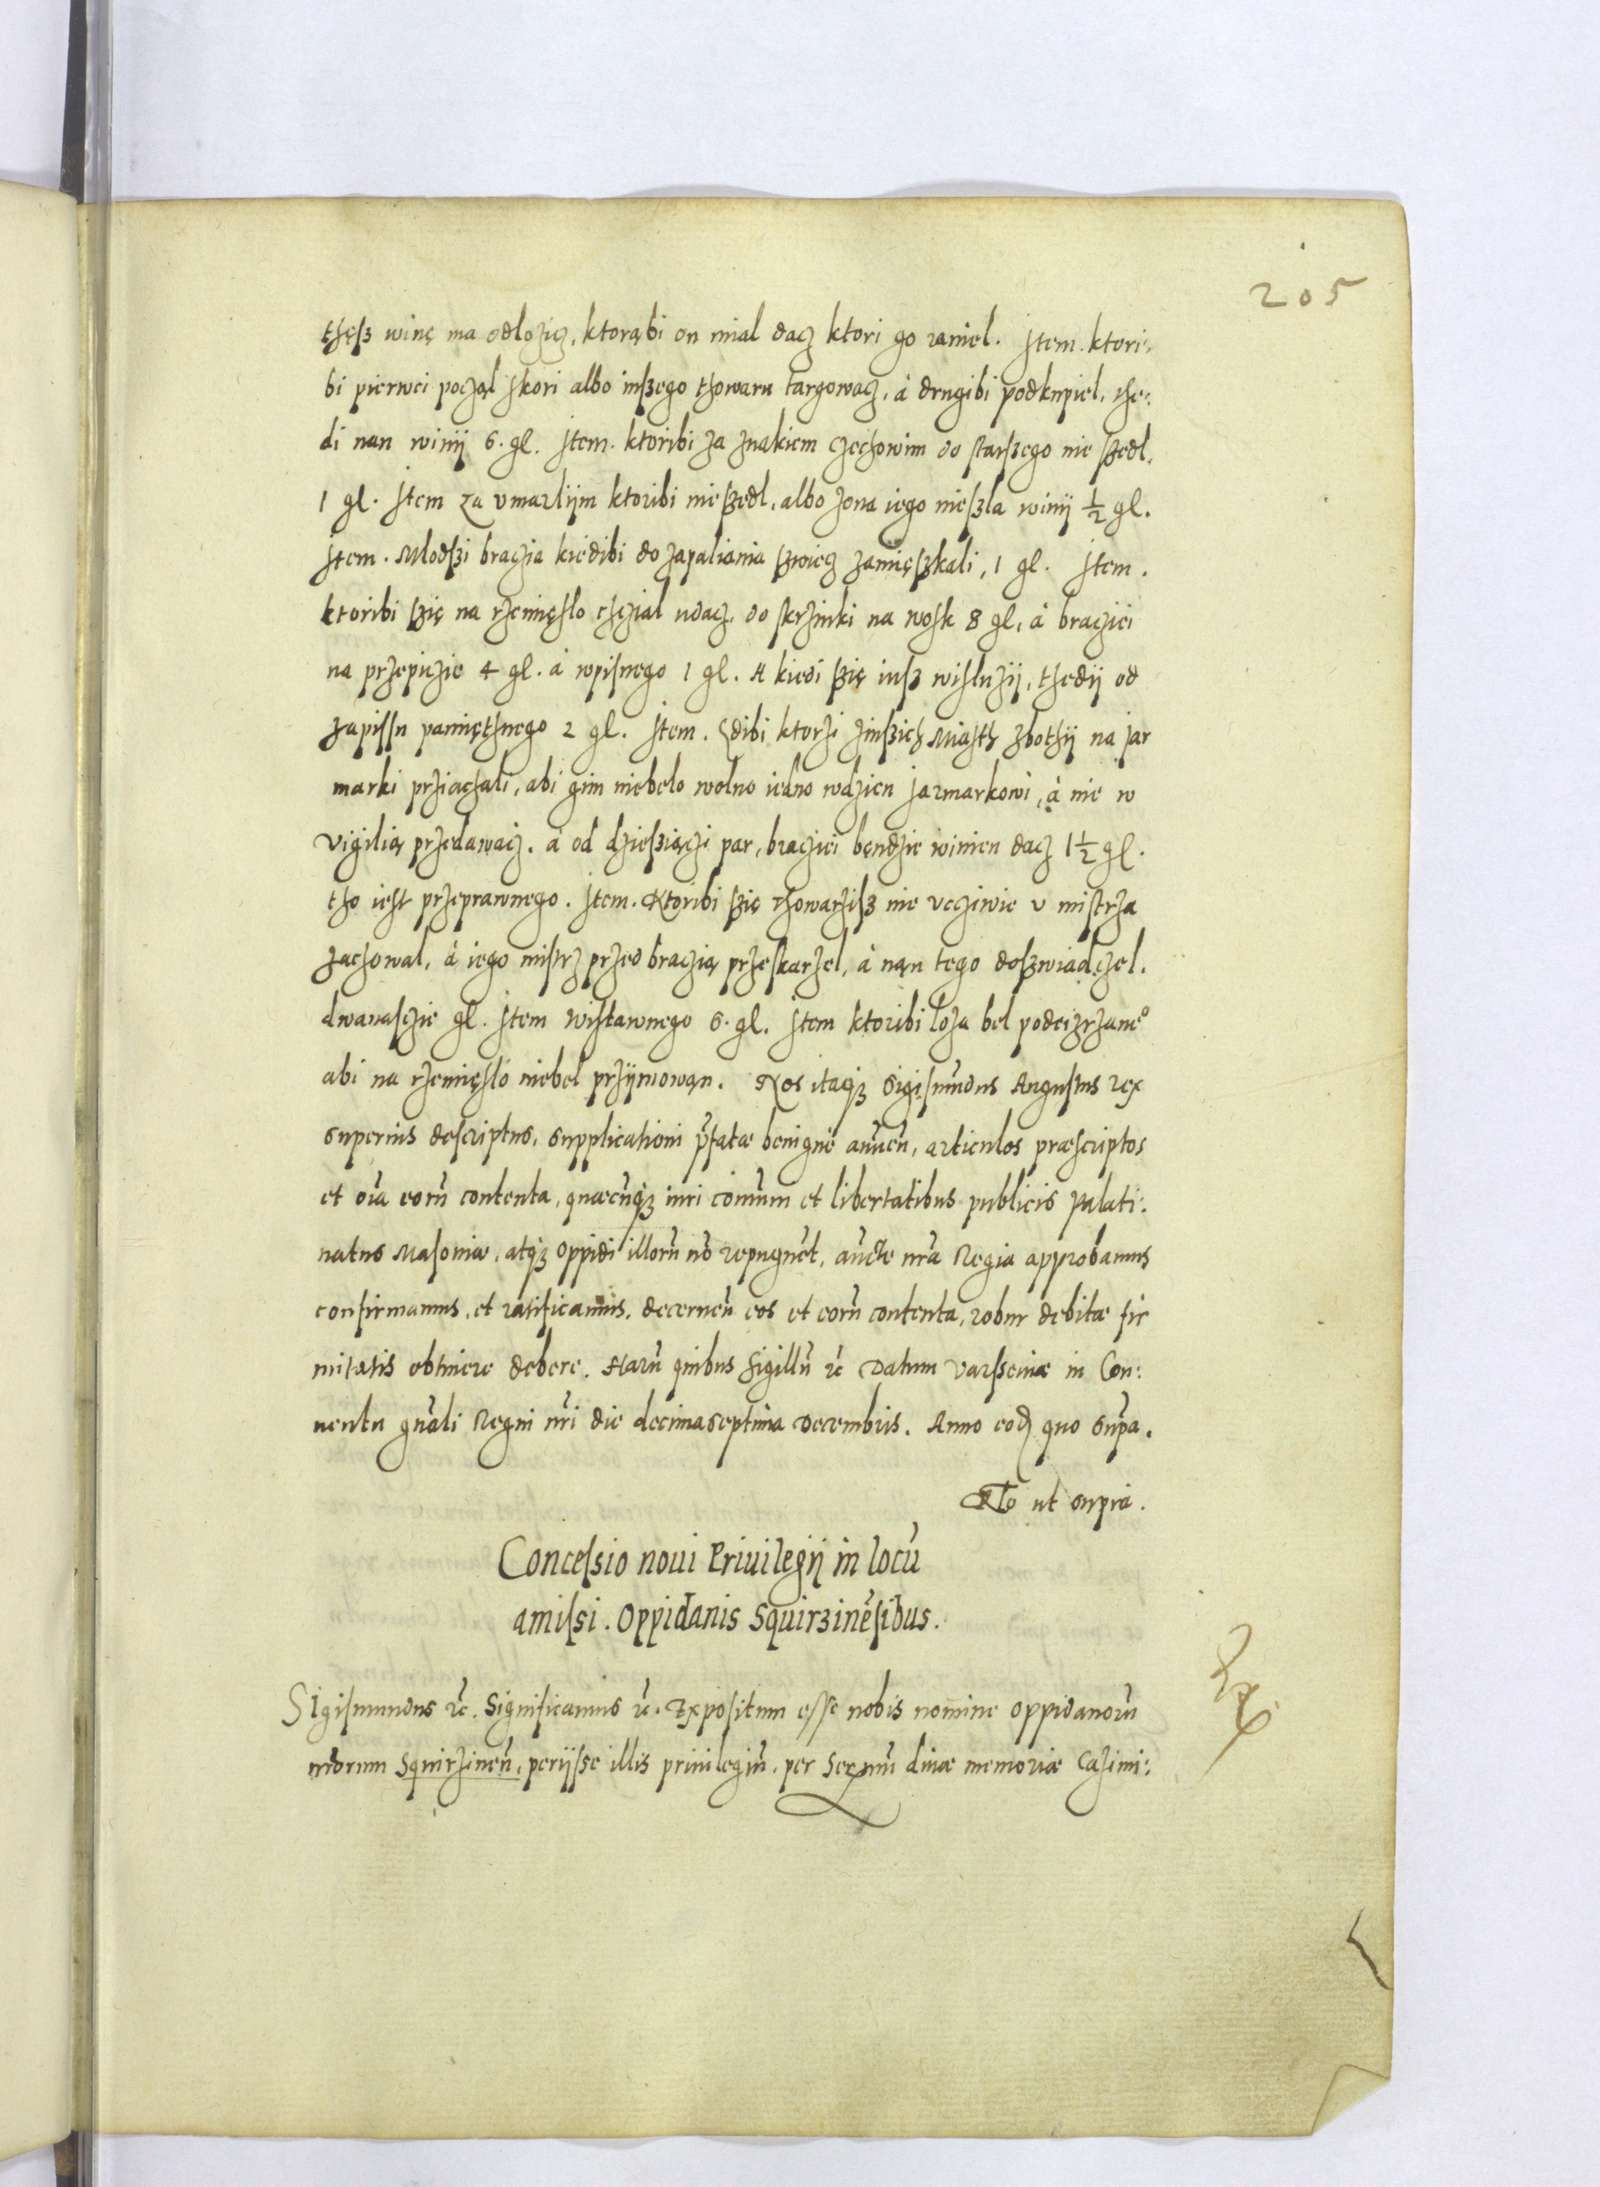 205
thęsz winę ma odlożicz, ktorąbi on mial dacz ktori go raniel. Item. ktori:
bi pierwei począl skori albo inszego thowaru targowacz, à drugibi podkupiel, the:
di nan winij 6. gl. Item. ktoribi za znakiem czechowim do starszego nie szedl,
1 gl. Item za vmarlijm ktoribi nie szedl, albo zona iego nieszla winij ½ gl.
Item. Mlodszi braczia kiedibi do zapaliania szwiecz zamięszkali, 1 gl. Item.
ktoribi szię na rzemięslo chczial udacz, do skrzinki na wosk 8 gl, à braczici
na przepiczie 4 gl. à wpisnego 1 gl. A kiedi szię iusz wisluzij, thedij od
zapissu pamięthnego 2 gl. Item. Gdibi ktorzi zinszich Miasth zbothij na jar
marki prziachali, abi gim niebelo wolno iedno wdzien Jarmarkowi, à nie w
vigilią przedawacz. à od dziesziączi par, braczici będzie winien dacz 1½ gl.
tho iest przeprawnego. Item. Ktoribi szię thowarzisz nie vcziwie v mistrza
zachowal, à iego mistrz przed braczią przeskarzel, à nąn tego doszwiadczel.
dwanasczie gl. Item wistawnego 6. gl. Item ktoribi loża bel podeizrzane͡o
abi na rzemięslo niebel przijmowąn. Nos itaqꝫ Sigismūdus Augustus rex
superius descriptus, supplicationi p̄fatæ benignè anūen̄, articulos præscriptos
et oīa eorū contenta, quæcūqꝫ iuri com̄uni et libertatibus publicis Palati:
natus Masoniæ, atqꝫ oppidi illorū nō repugnēt, auctē nr̄a Regia approbamus
confirmamus, et ratificamus, decernen̄ eos et eorū contenta, robur debitæ fir
mitatis obtinere debere. Harū quibus sigillū r̄c Datum Varssoviæ in Con:
uentu gn̄ali Regni nr̄i die decimaseptima Decembris. Anno eod̄ quo sup̄a.
Rlō ut supra.
Concessio noui Priuilegij in locū
amissi. Oppidanis Squirzinēsibus.
SIgismundus r̄c. Significamus r̄c. Expositum esse nobis nomine oppidanorū
nr̄orum Squirzinen̄, perijsse illis priuilegiū, per Serm̄ū diuæ memoriæ Casimi: